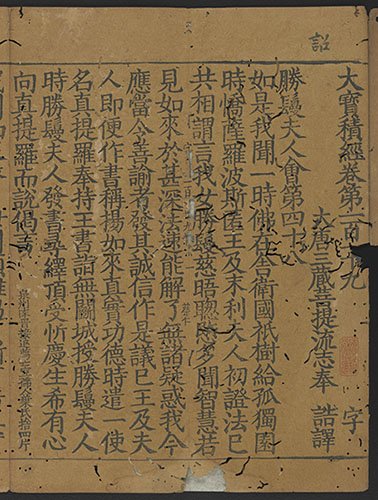 詔
大寶積經卷第一百一十九 字
大唐三藏菩提流志奉 詔譯
勝鬘夫人會第四十八
如是我聞一時佛在舍衛國祇樹給孤獨園
時憍薩羅波斯匿王及末利夫人初證法已
共相謂言我女勝鬘慈晤聰愍多聞智慧若
見如來於甚深法速能解了無諸疑惑我今
應當令善諭者發其誠信作是議已王及夫
人即便作書稱揚如來真實功德時遣一使
名真提羅奉持王書詣無鬬城授勝鬘夫人
時勝鬘夫人發書尋繹頂受忻慶生希有心
向真提羅而說偈言